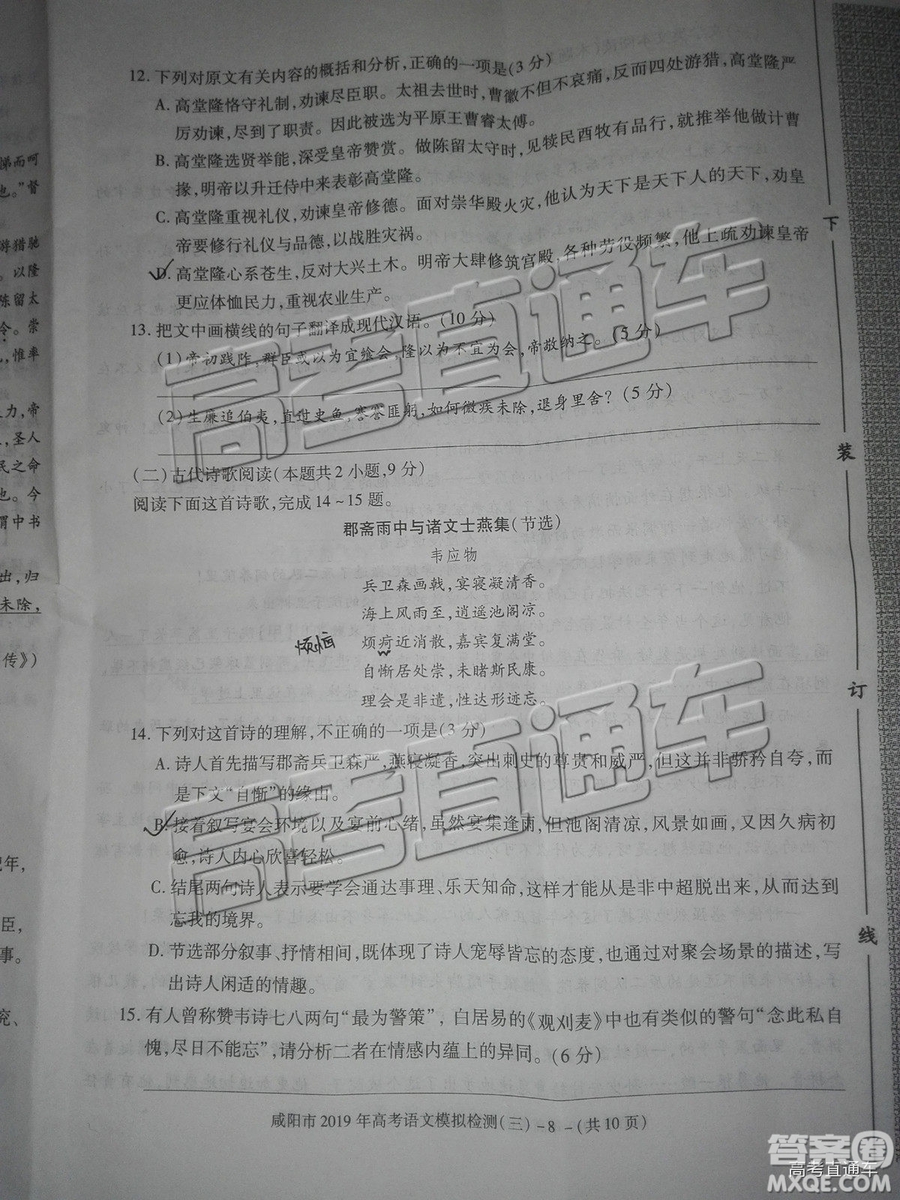 12. 下列对原文有关内容的概括和分析,正确的一项是(3 分)
A. 高堂隆恪守礼制,劝谏尽臣职。太祖去世时,曹徽不但不哀痛,反而四处游猎,高堂隆严
厉劝谏,尽到了职责。因此被选为平原王曹睿太傅。
B. 高堂隆选贤举能,深受皇帝赞赏。做陈留太守时,见犊民酉牧有品行,就推举他做计曹
掾,明帝以升迁侍中来表彰高堂隆。
C. 高堂隆重视礼仪,劝谏皇帝修德。面对崇华殿火灾,他认为天下是天下人的天下,劝皇
帝要修行礼仪与品德,以战胜灾祸。
D. 高堂隆心系苍生,反对大兴土木。明帝大肆修筑宫殿,各种劳役频繁,他上疏劝谏皇帝
更应体恤民力,重视农业生产。
13. 把文中画横线的句子翻译成现代汉语。(10 分)
(1)帝初践阼,群臣或以为宜飨会,隆以为不宜为会,帝敬纳之。(5 分)
(2)生廉追伯夷,直过史鱼,謇謇匪躬,如何微疾未除,退身里舍?(5 分)
(二)古代诗歌阅读(本题共 2 小题,9 分)
阅读下面这首诗歌,完成 14~15 题。
郡斋雨中与诸文士燕集(节选)
韦应物
兵卫森画戟,宴寝凝清香。
海上风雨至,逍遥池阁凉。
烦疴近消散,嘉宾复满堂。
烦恼
自惭居处崇,未睹斯民康。
理会是非遣,性达形迹忘。
14. 下列对这首诗的理解,不正确的一项是(3 分)
A. 诗人首先描写郡斋兵卫森严,燕寝凝香,突出刺史的尊贵和威严,但并非骄矜自夸,而
是下文“自惭”的缘由。
B. 接着叙写宴会环境以及宴前心绪,虽然宴集逢雨,但池阁清凉,风景如画,又因久病初
愈,诗人内心欣喜轻松。
C. 结尾两句诗人表示要学会通达事理、乐天知命,这样才能从是非中超脱出来,达到
忘我的境界。
D. 节选部分叙事、抒情相间,既体现了诗人宠辱皆忘的态度,也通过对聚会场景的描述,写
出诗人闲适的情趣。
15. 有人曾称赞韦诗七八两句“最为警策”,白居易的《观刈麦》中也有类似的警句“念此私自
愧,尽日不能忘”,请分析二者在情感内蕴上的异同。(6 分)
咸阳市 2019 年高考语文模拟检测(三) - 8 - (共 10 页)
下
装
订
线
高考直通车
高考直通车
答案圈
高考直通车
MXQE.COM